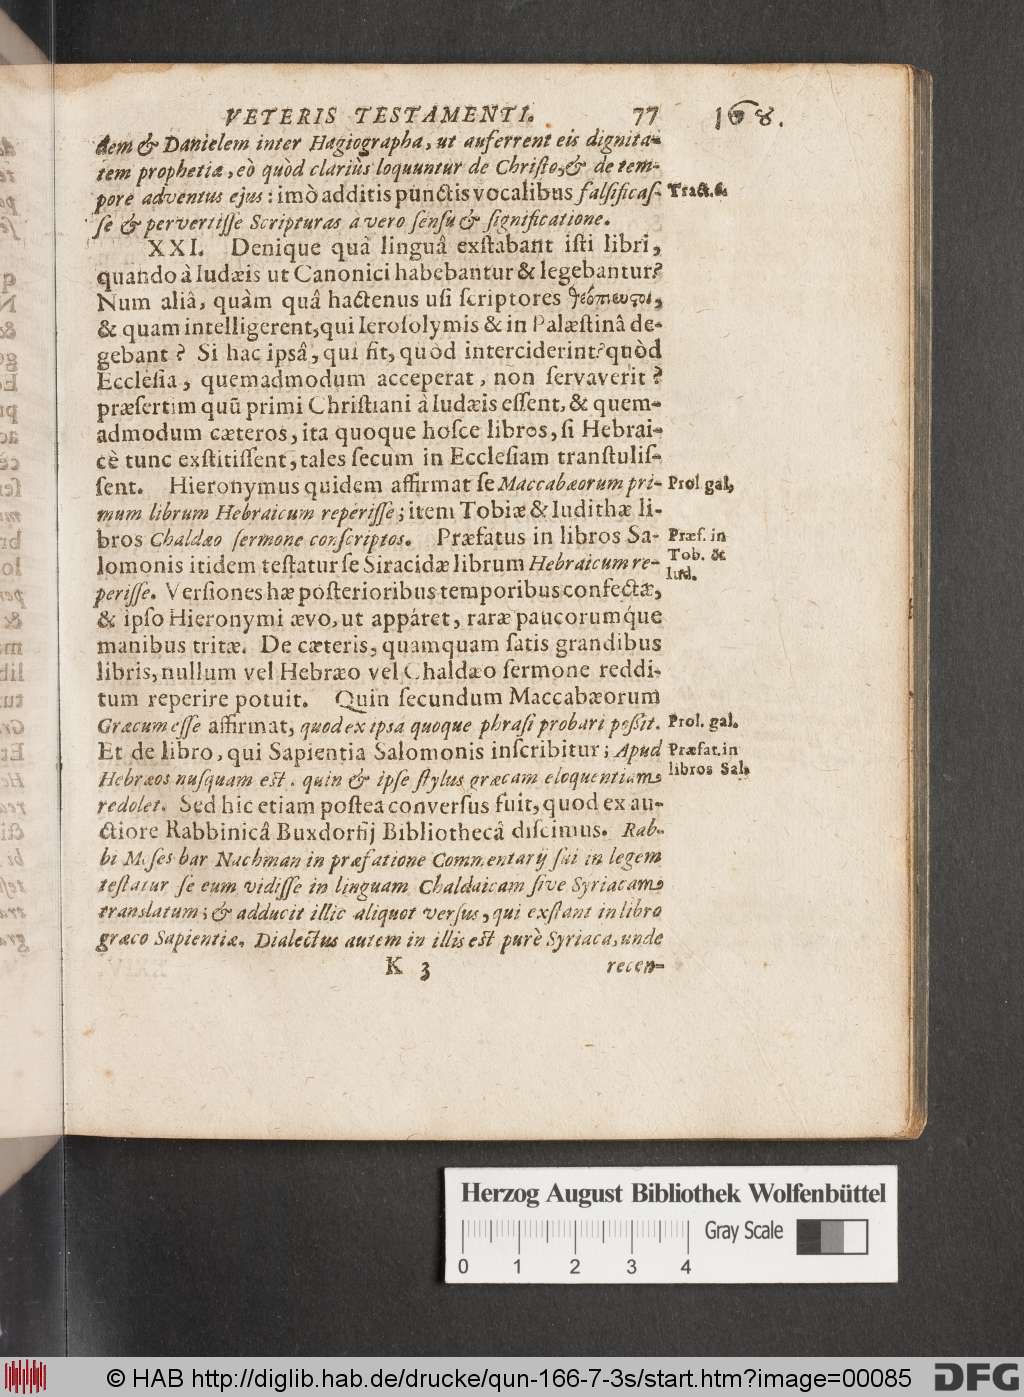 VETERIS TESTAMENTI. 77 168.
dem & Danielem inter Hagiographa, ut auferrent eis dignita-
tem prophetiæ, eò quòd clariùs loquuntur de Christo, & de tem-
pore adventus ejus: imò additis punctis vocalibus falsificas- Tract. 6
se & pervertisse Scripturas a vero sensu & significatione.
XXI. Denique quà linguâ exstabant isti libri,
quando à Iudæis ut Canonici habebantur & legebantur?
Num aliâ, quàm quâ hactenus usi scriptores θεόπνευστοι,
& quam intelligerent, qui Ierosolymis & in Palæstinâ de-
gebant? Si hac ipsâ, qui fit, quòd interciderint? quòd
Ecclesia, quemadmodum acceperat, non servaverit?
præsertim quũ primi Christiani à Iudæis essent, & quem-
admodum cæteros, ita quoque hosce libros, si Hebrai-
cè tunc exstitissent, tales secum in Ecclesiam transtulis-
sent. Hieronymus quidem affirmat se Maccabæorum pri- Prol gal,
mum librum Hebraicum reperisse; item Tobiæ & Iudithæ li-
bros Chaldæo sermone conscriptos. Præfatus in libros Sa- Præf. in
Tob. &
lomonis itidem testatur se Siracidæ librum Hebraicum re- Iud.
perisse. Versiones hæ posterioribus temporibus confectæ,
& ipso Hieronymi ævo, ut appáret, raræ paucorumq́ue
manibus tritæ. De cæteris, quamquam satis grandibus
libris, nullum vel Hebræo vel Chaldæo sermone reddi-
tum reperire potuit. Quin secundum Maccabæorum
Græcum esse affirmat, quod ex ipsa quoque phrasi probari possit. Prol. gal.
Et de libro, qui Sapientia Salomonis inscribitur; Apud Præfat. in
Hebræos nusquam est. quin & ipse stylus græcam eloquentiam libros Sal.
redolet. Sed hic etiam postea conversus fuit, quod ex au-
ctiore Rabbinicâ Buxdorfij Bibliothecâ discimus. Rab-
bi Moses bar Nachman in præfatione Commentarij sui in legem
testatur se eum vidisse in linguam Chaldaicam sive Syriacam
translatum; & adducit illic aliquot versus, qui exstant in libro
græco Sapientiæ. Dialectus autem in illis est purè Syriaca, unde
K 3 recen-
Herzog August Bibliothek Wolfenbüttel
Gray Scale
0 1 2 3 4
© HAB http://diglib.hab.de/drucke/qun-166-7-3s/start.htm?image=00085 DFG